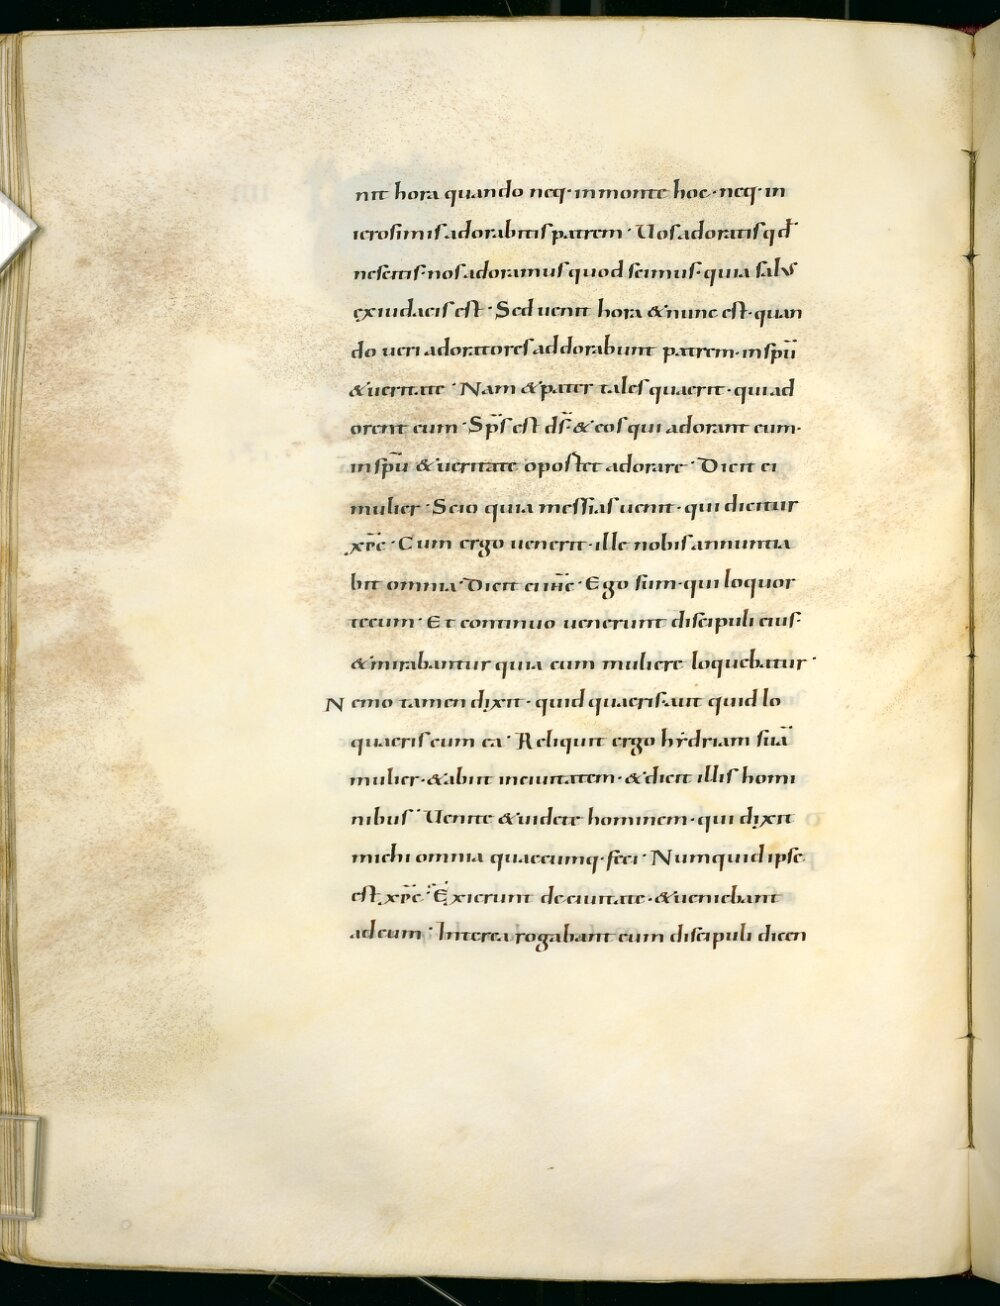 nit hora quando neq· inmonte hoc· neq· in
ierosimis adorabitis patrem· Uos adoratis qđ
nescitis· nos adoramus quod scimus· quia salus
exiudaeis est· Sed uenit hora & nunc est· quan
do ueri adoratores addorabunt patrem· inspū
& ueritate· Nam & pater tales quaerit· qui ad
orent eum· Sps̄ est ds̄· & eos qui adorant eum·
inspū & ueritate opostet adorare· Dicit ei
mulier· Scio quia messias uenit· qui dicitur
xp̄c· Cum ergo uenerit· ille nobis annuntia
bit omnia· Dicit ei ih̄c· Ego sum· qui loquor
tecum· Et continuo uenerunt discipuli eius·
& mirabantur quia cum muliere loquebatur·
Nemo tamen dixit· quid quaeris· aut quid lo
quaeris cum ea· Reliquit ergo hẏdriam suā
mulier· & abiit inciuitatem· & dicit illis homi
nibus· Uenite & uidete hominem· qui dixit
michi omnia quaecumq· feci· Numquid ipse
est xp̄c· Exierunt deciuitate· & ueniebant
adeum· Interea rogabant eum discipuli dicen